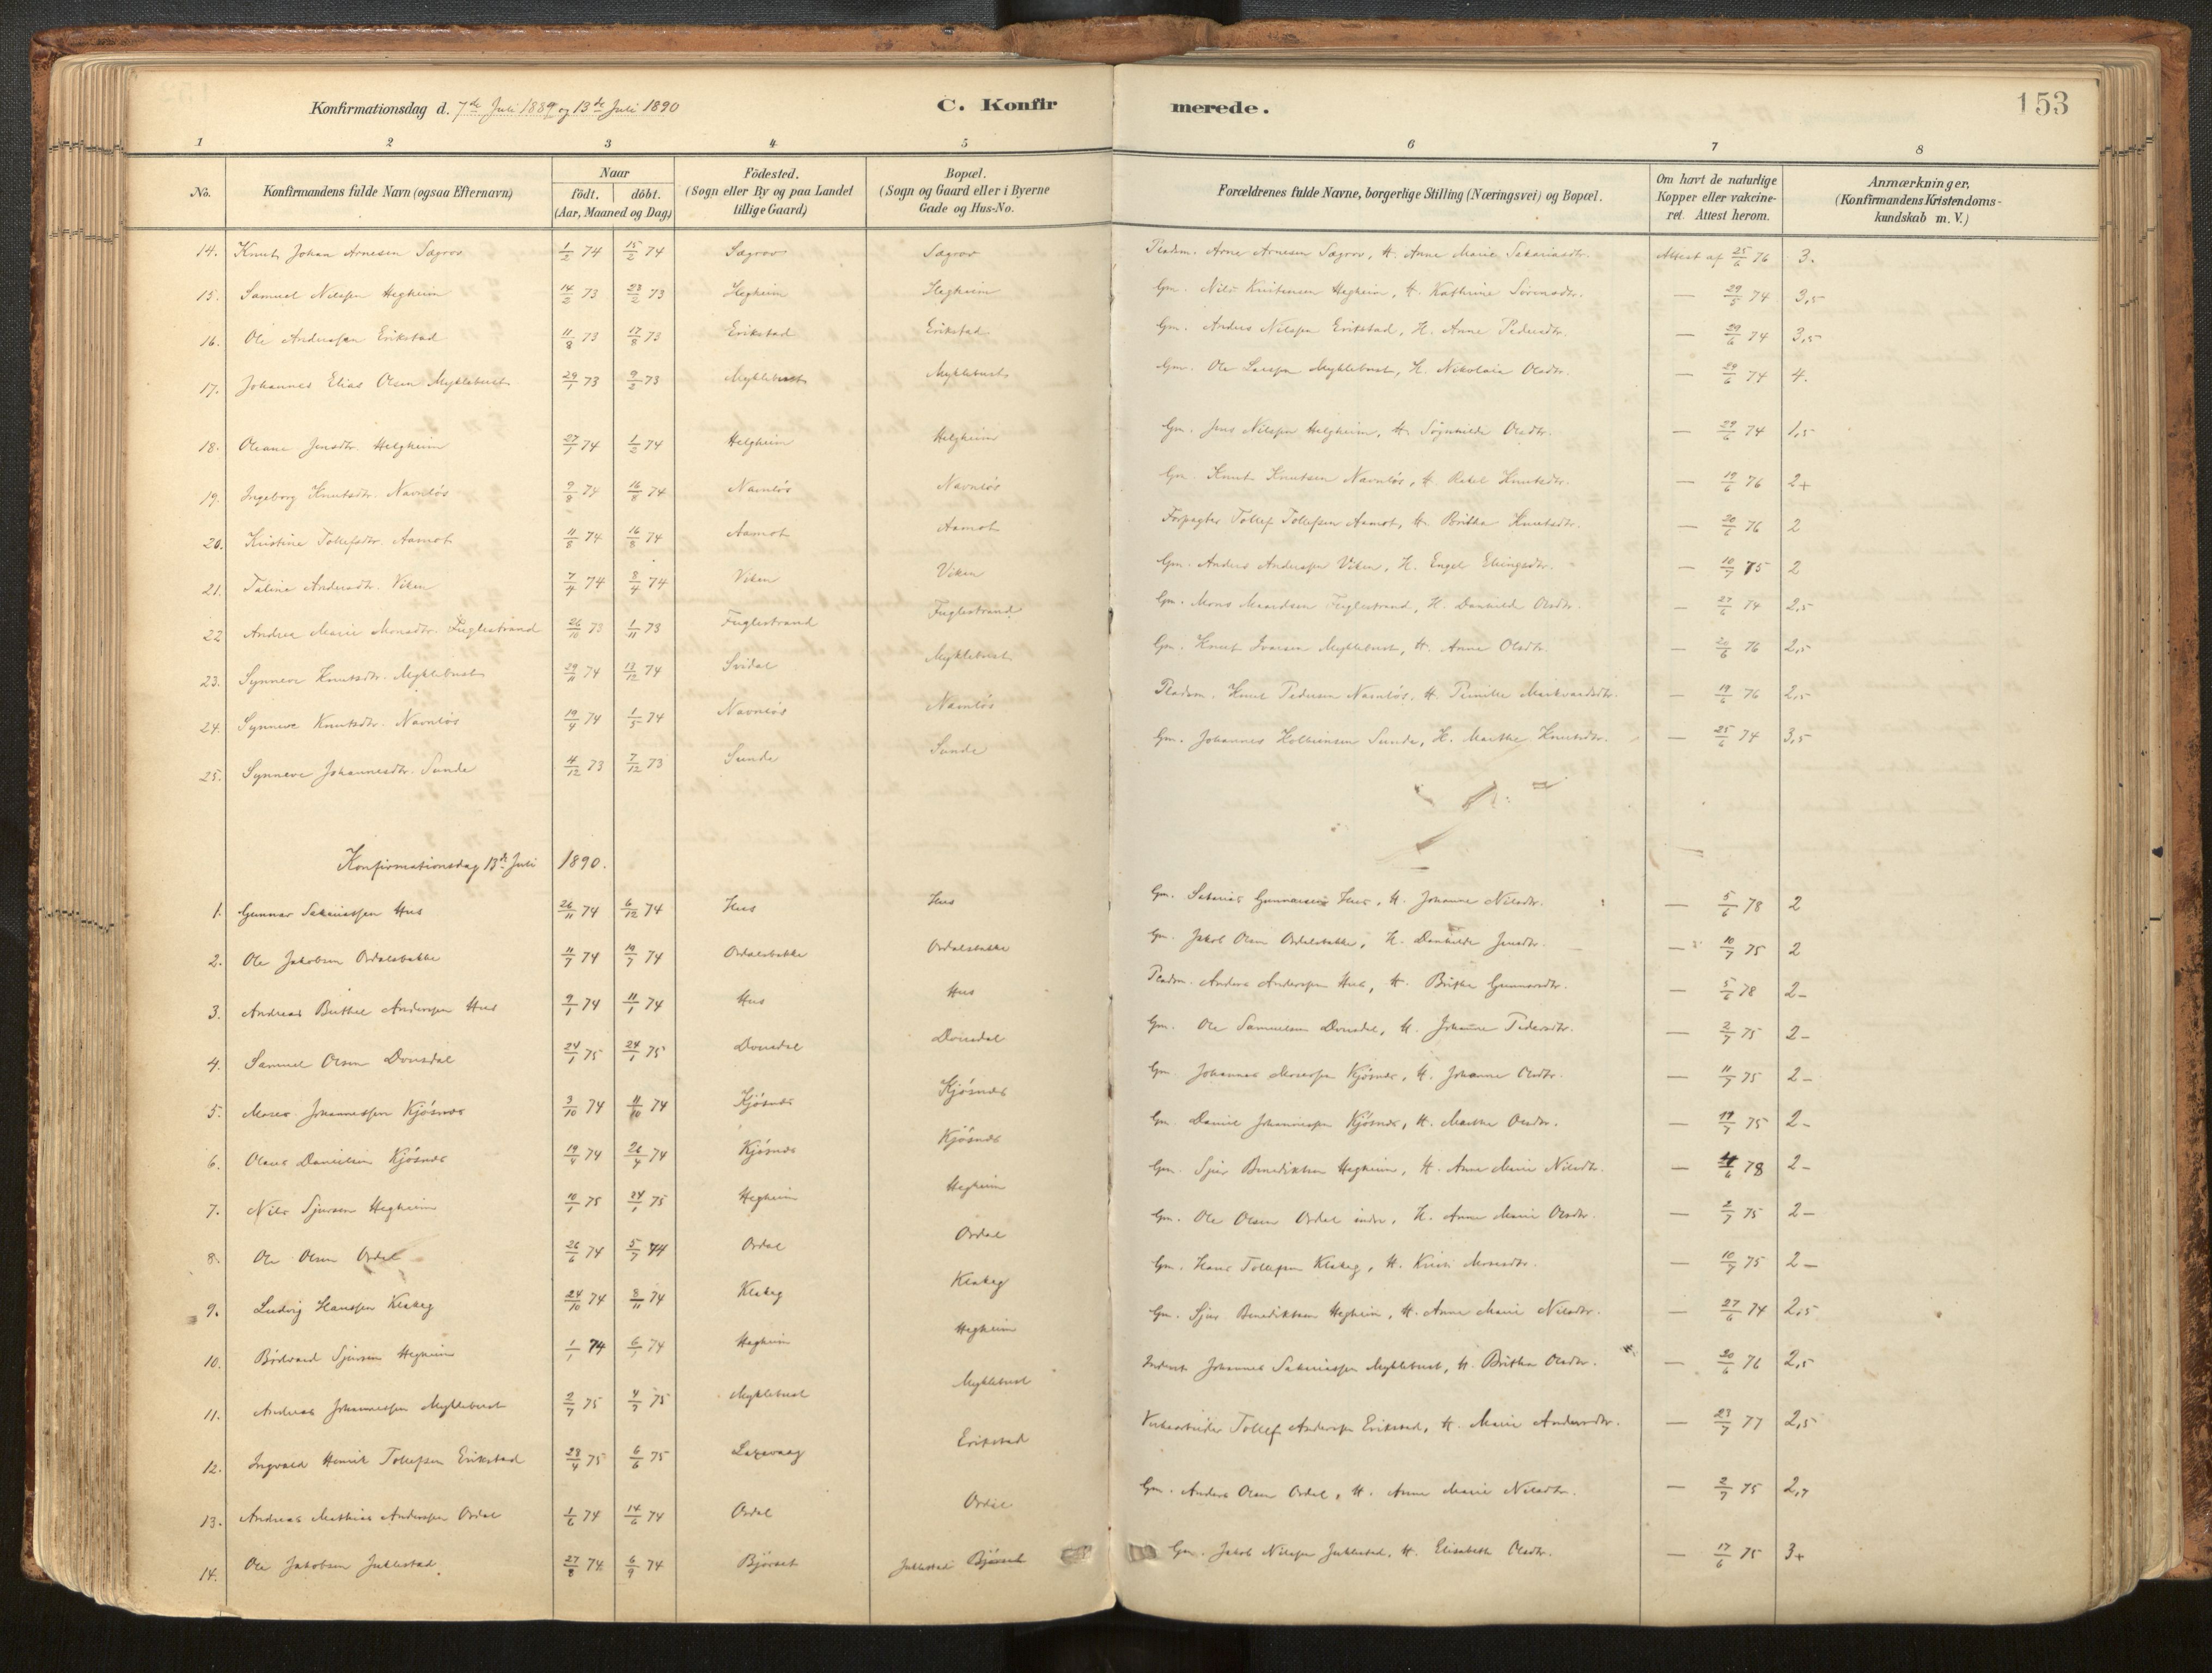 Konfirmationsdag d. 7de Juli 1889 og 13de Juli 1890 C. Konfirmerede. 153
1 2 3 4 5 6 7 8
No. Konfirmandens fulde Navn (ogsaa Efternavn) Naar født. døbt. (Aar, Maaned og Dag) Födested. (Sogn eller By og paa Landet tillige Gaard) Bopæl. (Sogn og Gaard eller i Byerne Gade og Hus-No. Forældrenes fulde Navne, borgerlige Stilling (Næringsvei) og Bopæl. Om havt de naturlige Kopper eller vakcineret. Attest herom. Anmærkninger, (Konfirmandens Kristendomskundskab m. V.)
14. Knut Johan Arnesen Sægrov 1/2 74 15/2 74 Sægrov Sægrov Pladsm. Arne Arnesen Sægrov, H. Anne Marie Sakariasdtr. Attest af 25/6 76 3.
15. Samuel Nilssen Hegheim 14/2 73 23/2 73 Hegheim Hegheim Gm. Nils Kristensen Hegheim, H. Kathrine Sørensdtr. — 29/5 74 3,5
16. Ole Anderssen Erikstad 11/8 73 17/8 73 Erikstad Erikstad Gm. Anders Nilssen Erikstad, H. Anne Pedersdtr. — 29/6 74 3,5
17. Johannes Elias Olsen Myklebust 29/1 73 9/2 73 Myklebust Myklebust Gm. Ole Larssen Myklebust, H. Nikolaia Olsdtr. — 29/6 74 4.
18. Oleane Jensdtr. Helgheim 27/1 74 1/2 74 Helgheim Helgheim Gm. Jens Nilssen Helgheim, H. Søgnhilde Olsdtr. — 29/6 74 1,5
19. Ingeborg Knutsdtr. Navnløs 9/8 74 16/8 74 Navnløs Navnløs Gm. Knut Knutsen Navnløs, H. Rakel Knutsdtr. — 19/6 76 2+
20. Kristine Tollefsdtr. Aamot 11/8 74 16/8 74 Aamot Aamot Forpagter Tollef Tollefsen Aamot, H. Britha Knutsdtr. — 20/6 76 2
21. Taline Andersdtr. Viken 7/4 74 8/4 74 Viken Viken Gm. Anders Anderssen Viken, H. Engel Elingsdtr. — 10/7 75 2
22 Andrea Marie Monsdtr. Fuglestrand 26/10 73 1/11 73 Fuglestrand Fuglestrand Gm. Mons Fuglestrand, H. Danhilde Olsdtr. — 27/6 74 2,5
23. Synneve Knutsdtr. Myklebust 29/11 74 13/12 74 Svidal Myklebust Gm. Knut Ivarsen Myklebust, H. Anne Olsdtr. — 20/6 76 2,5
24. Synneve Knutsdtr. Navnløs 19/4 74 1/5 74 Navnløs Navnløs Pladsm. Knut Pedersen Navnløs, H. Pernille Markvardsdtr. — 19/6 76 2,5
25. Synneve Johannesdtr. Sunde 4/12 73 7/12 73 Sunde Sunde Gm. Johannes Kolbeinsen Sunde, H. Marthe Knutsdtr. — 25/6 74 3,5
Konfirmationsdag 13de Juli 1890.
1. Gunnar Sakariassen Hus 26/11 74 6/12 74 Hus Hus Gm. Sakarias Gunnarsen Hus, H. Johanne Nilsdtr. — 5/6 78 2
2. Ole Jakobsen Ordalsbakke 11/7 74 19/7 74 Ordalsbakke Ordalsbakke Gm. Jakob Olsen Ordalsbakke, H. Danhilde Jensdtr. — 10/7 75 2
3. Andreas Berthel Anderssen Hus 9/1 74 11/1 74 Hus Hus Pladsm. Anders Anderssen Hus, H. Britha Gunnarsdtr. — 5/6 78 2-
4. Samuel Olsen Dvusdal 24/1 75 24/1 75 Dvusdal Dvusdal Gm. Ole Samuelsen Dvusdal, H. Johanne Pedersdtr. — 2/7 75 2-
5. Moses Johannessen Kjøsnes 3/10 74 11/10 74 Kjøsnes Kjøsnes Gm. Johannes Mosessen Kjøsnes, H. Johanne Olsdtr. — 11/7 75 2-
6. Olaus Danielsen Kjøsnes 19/4 74 26/4 74 Kjøsnes Kjøsnes Gm. Daniel Johannessen Kjøsnes, H. Marthe Olsdtr. — 17/7 75 2-
7. Nils Sjursen Hegheim 10/1 75 24/1 75 Hegheim Hegheim Gm. Sjur Benediktsen Hegheim, H. Anne Marie Nilsdtr. — 4/6 78 2-
8. Ole Olsen Ordal 26/6 74 5/7 74 Ordal Ordal Gm. Ole Olsen Ordal indre, H. Anne Marie Olsdtr. — 2/7 75 2-
9. Ludvig Hanssen Klakeg 24/10 74 8/11 74 Klakeg Klakeg Gm. Hans Tollefsen Klakeg, H. Kristi Mosesdtr. — 10/7 75 2-
10. Bødvard Sjursen Hegheim 1/1 74 6/1 74 Hegheim Hegheim Gm. Sjur Benediktsen Hegheim, H. Anne Marie Nilsdtr. — 27/6 74 2,5
11. Andreas Johannessen Myklebust 2/7 75 4/7 75 Myklebust Myklebust Inderst Johannes Sakariassen Myklebust, H. Britha Olsdtr. — 20/6 76 2,5
12. Ingvald Henrik Tollefsen Erikstad 28/4 75 6/6 75 Laxevaag Erikstad Tollef Anderssen Erikstad, H. Marie Andersdtr. — 23/7 77 2,5
13. Andreas Mathias Anderssen Ordal 1/6 74 14/6 74 Ordal Ordal Gm. Anders Olsen Ordal, H. Anne Marie Nilsdtr. — 2/7 75 2,7
14. Ole Jakobsen Juklestad. 27/8 74 6/9 74 Bjørset Juklestad Bjørset Gm. Jakob Nilssen Juklestad, H. Elisabeth Olsdtr. — 17/6 75 3+